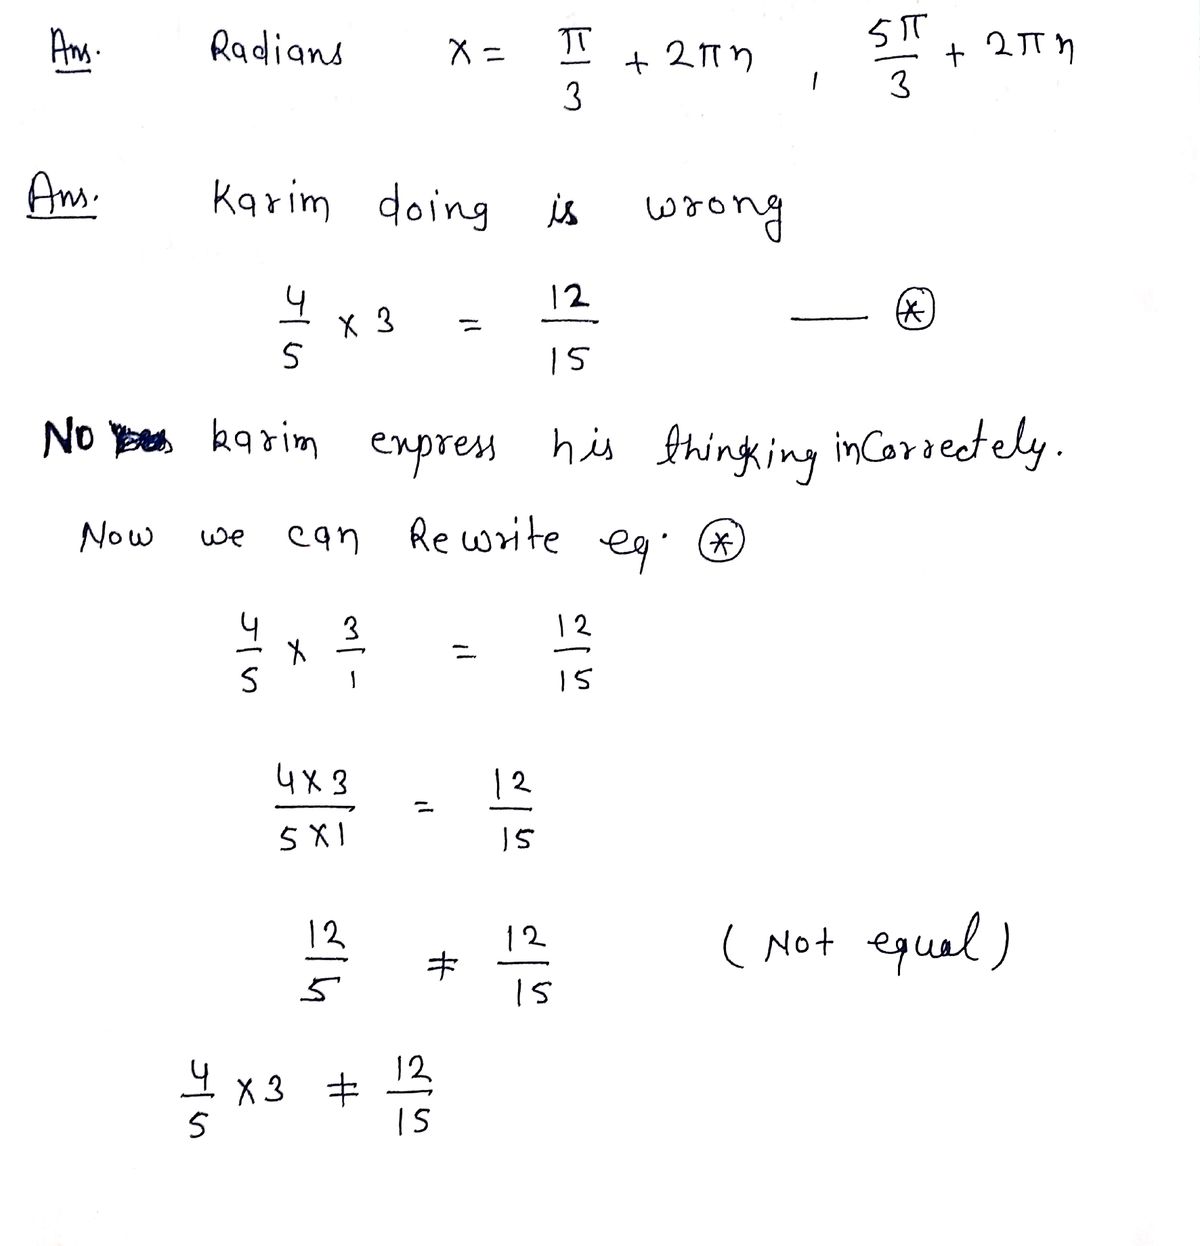 Ans. Radians x = π/3 + 2πn , 5π/3 + 2πn
Ans. Karim doing is wrong
4/5 × 3 = 12/15 — ⊛
No karim express his thingking incorrectely.
Now we can Rewrite eq. ⊛
4/5 × 3/1 = 12/15
4×3/5×1 = 12/15
12/5 ≠ 12/15 (Not equal)
4/5 ×3 ≠ 12/15